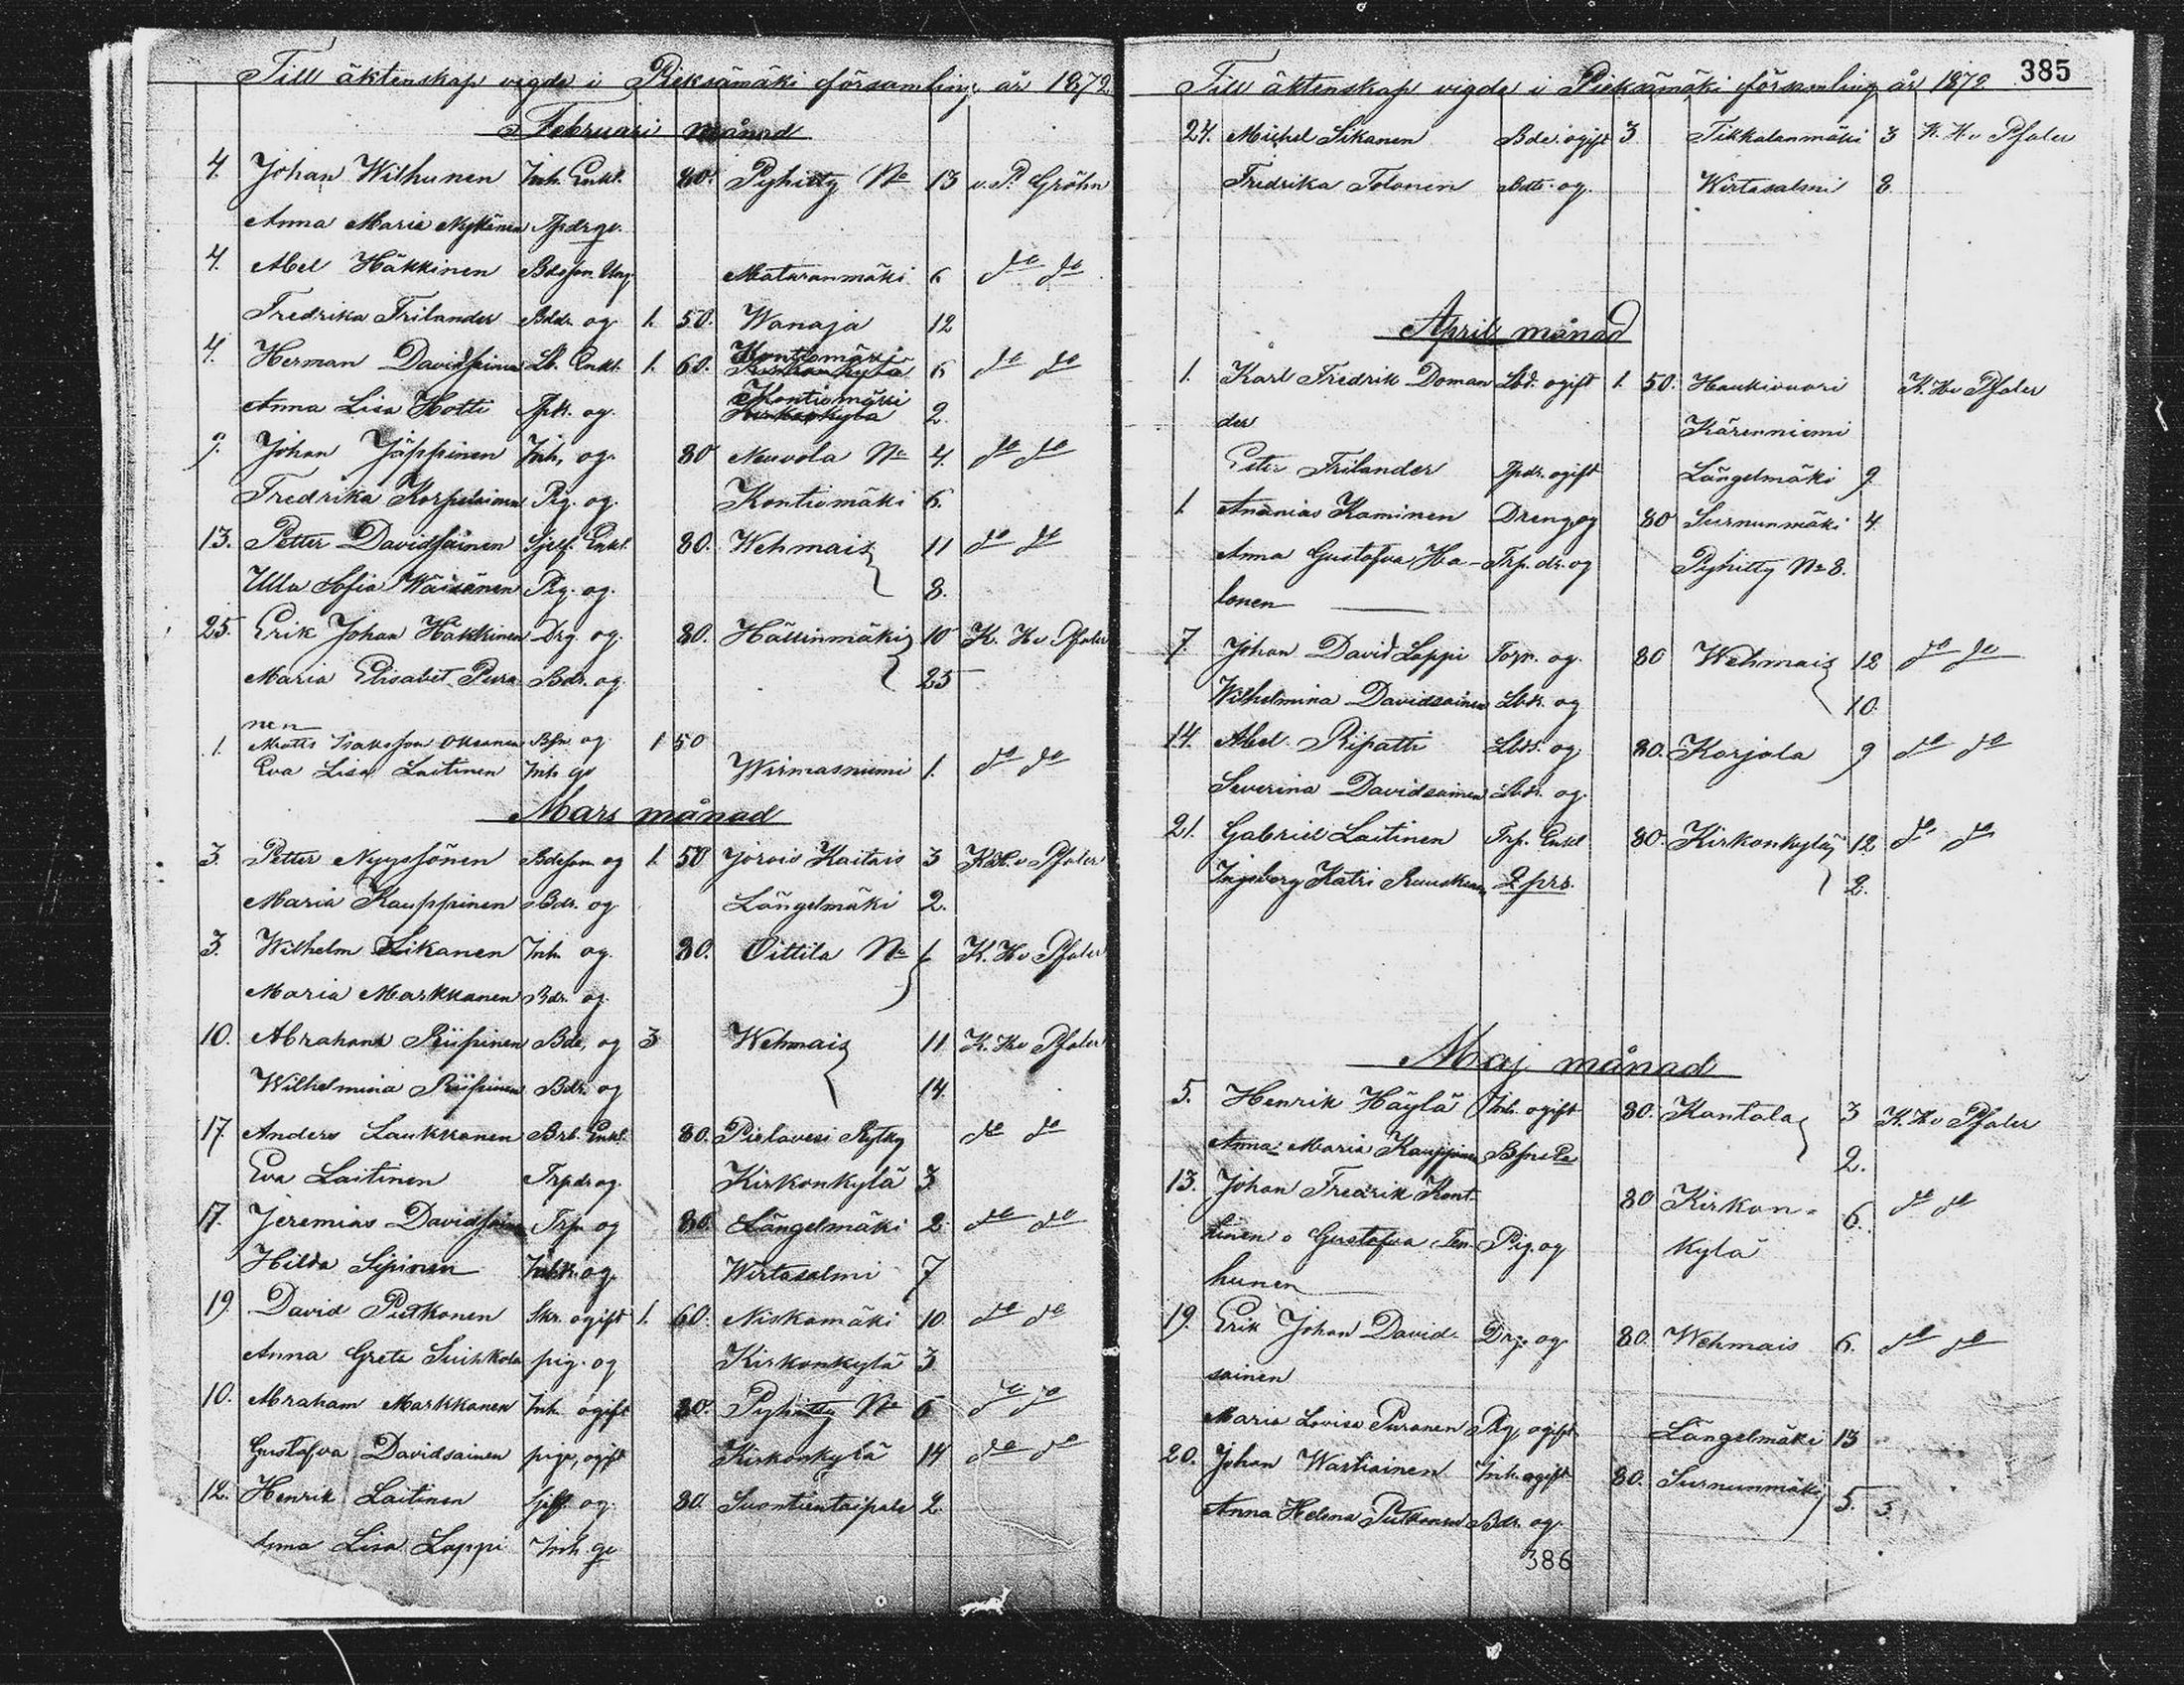 Till äktenskap vigde i Pieksämäki församling år 1872
Februari månad
4. Johan Wilhunen Inh. Enkl. 80. Pyhitty No 13 v. P. Gröhn
Anna Maria Nykänen
4. Abel Häkkinen Bdeson Ung. Maturanmäki 6 do do
Fredrika Frilander Bddr. og 1. 50. Wanaja 12
4. Herman Davidsainen Lb. Enkl. 1. 60. Kontiomäki 6 do do
Anna Lisa Hotti og. Kontiomäki 2
9. Johan Jäppinen Inh. og. 80 Neuvola No 4. do do
Fredrika Korpelainen Pig. og. Kontiomäki 6.
13. Petter Davidsainen Sjelf. Enkl. 80. Wehmais 11 do do
Ulla Sofia Wäisänen Pig. og. 8.
25. Erik Johan Häkkinen Drg. og. 80. Hällinmäki 10 K. H. v Pfaler
Maria Elisabet Pura Bdr. og. 25
nen
1. Matts Isaksson Oksanen Bsn og 1 50
Eva Lisa Laitinen Inh ge Wirmasniemi 1. do do
Mars månad
3. Petter Nyyssönen Bdeson og 1. 50 Jorois Kaitais 3 K. H. v Pfaler
Maria Kauppinen Bdr. og Längelmäki 2.
3. Wilhelm Sikanen Inh og. 80. Pittila No 1. K. H. v Pfaler
Maria Markkanen Bdr. og.
10. Abraham Riipinen Bde, og 3 Wehmais 11 K. H. v Pfaler
Wilhelmina Riipinen Bdr. og 14.
17. Anders Laukkanen Enkl. 80. Pielavesi Rytky do do
Eva Laitinen Trpdr og. Kirkonkylä 3
17. Jeremias Davidsainen Trp. og 80. Längelmäki 2. do do
Hilda Sipinen og. Wirtasalmi 7
19. David Putkonen Skr. ogift 1. 60. Niskamäki 10. do do
Anna Greta Suihkola pig. og Kirkonkylä 3
10. Abraham Markkanen Inh ogift 80. Pyhitty No 6 do do
Gustafva Davidsainen piga, ogift Kirkonkylä 14 do do
12. Henrik Laitinen Sjelf. og. 80. Suontientaipale 2.
Anna Lisa Lappi Inh. ge
Till äktenskap vigde i Pieksämäki församling år 1872 385
24. Michel Sikanen Bde. ogift 3 Tikkalanmäki 3 K. H. v Pfaler
Fredrika Tolonen og. Wirtasalmi 8.
April månad
1. Karl Fredrik Doman Lbd. ogift 1. 50. Haukivuori K. H. v Pfaler
der Kärenniemi
Ester Frilander ogift Längelmäki 9
1. Ananias Kaminen Dreng og 80 Surnunmäki 4.
Anna Gustafva Ha- Trp. dr. og Pyhitty No 8.
lonen
7. Johan David Lappi Torp. og. 80 Wehmais 12 do do
Wilhelmina Davidsainen og 10.
14. Abel Ripatti og. 80. Karjala 9 do do
Severina Davidsainen og.
21. Gabriel Laitinen Trp. Enkl 80. Kirkonkylä 12. do do
Ingeborg Katri Ruuskanen 2 prs. 2.
Maj månad
5. Henrik Häylä Inh. ogift 80. Kantala 3 K. H. v Pfaler
Anna Maria Kauppinen 2.
13. Johan Fredrik Kont 80 Kirkon- 6. do do
tinen o Gustafva Ten- Pig. og kylä
hunen
19. Erik Johan David- Drg. og. 80. Wehmais 6. do do
sainen
Maria Lovisa Puranen Pig, ogift Längelmäki 13
20. Johan Wartiainen Inh. ogift 80. Surnunmäki 5. 3
Anna Helena Putkonen Bdr. og.
386